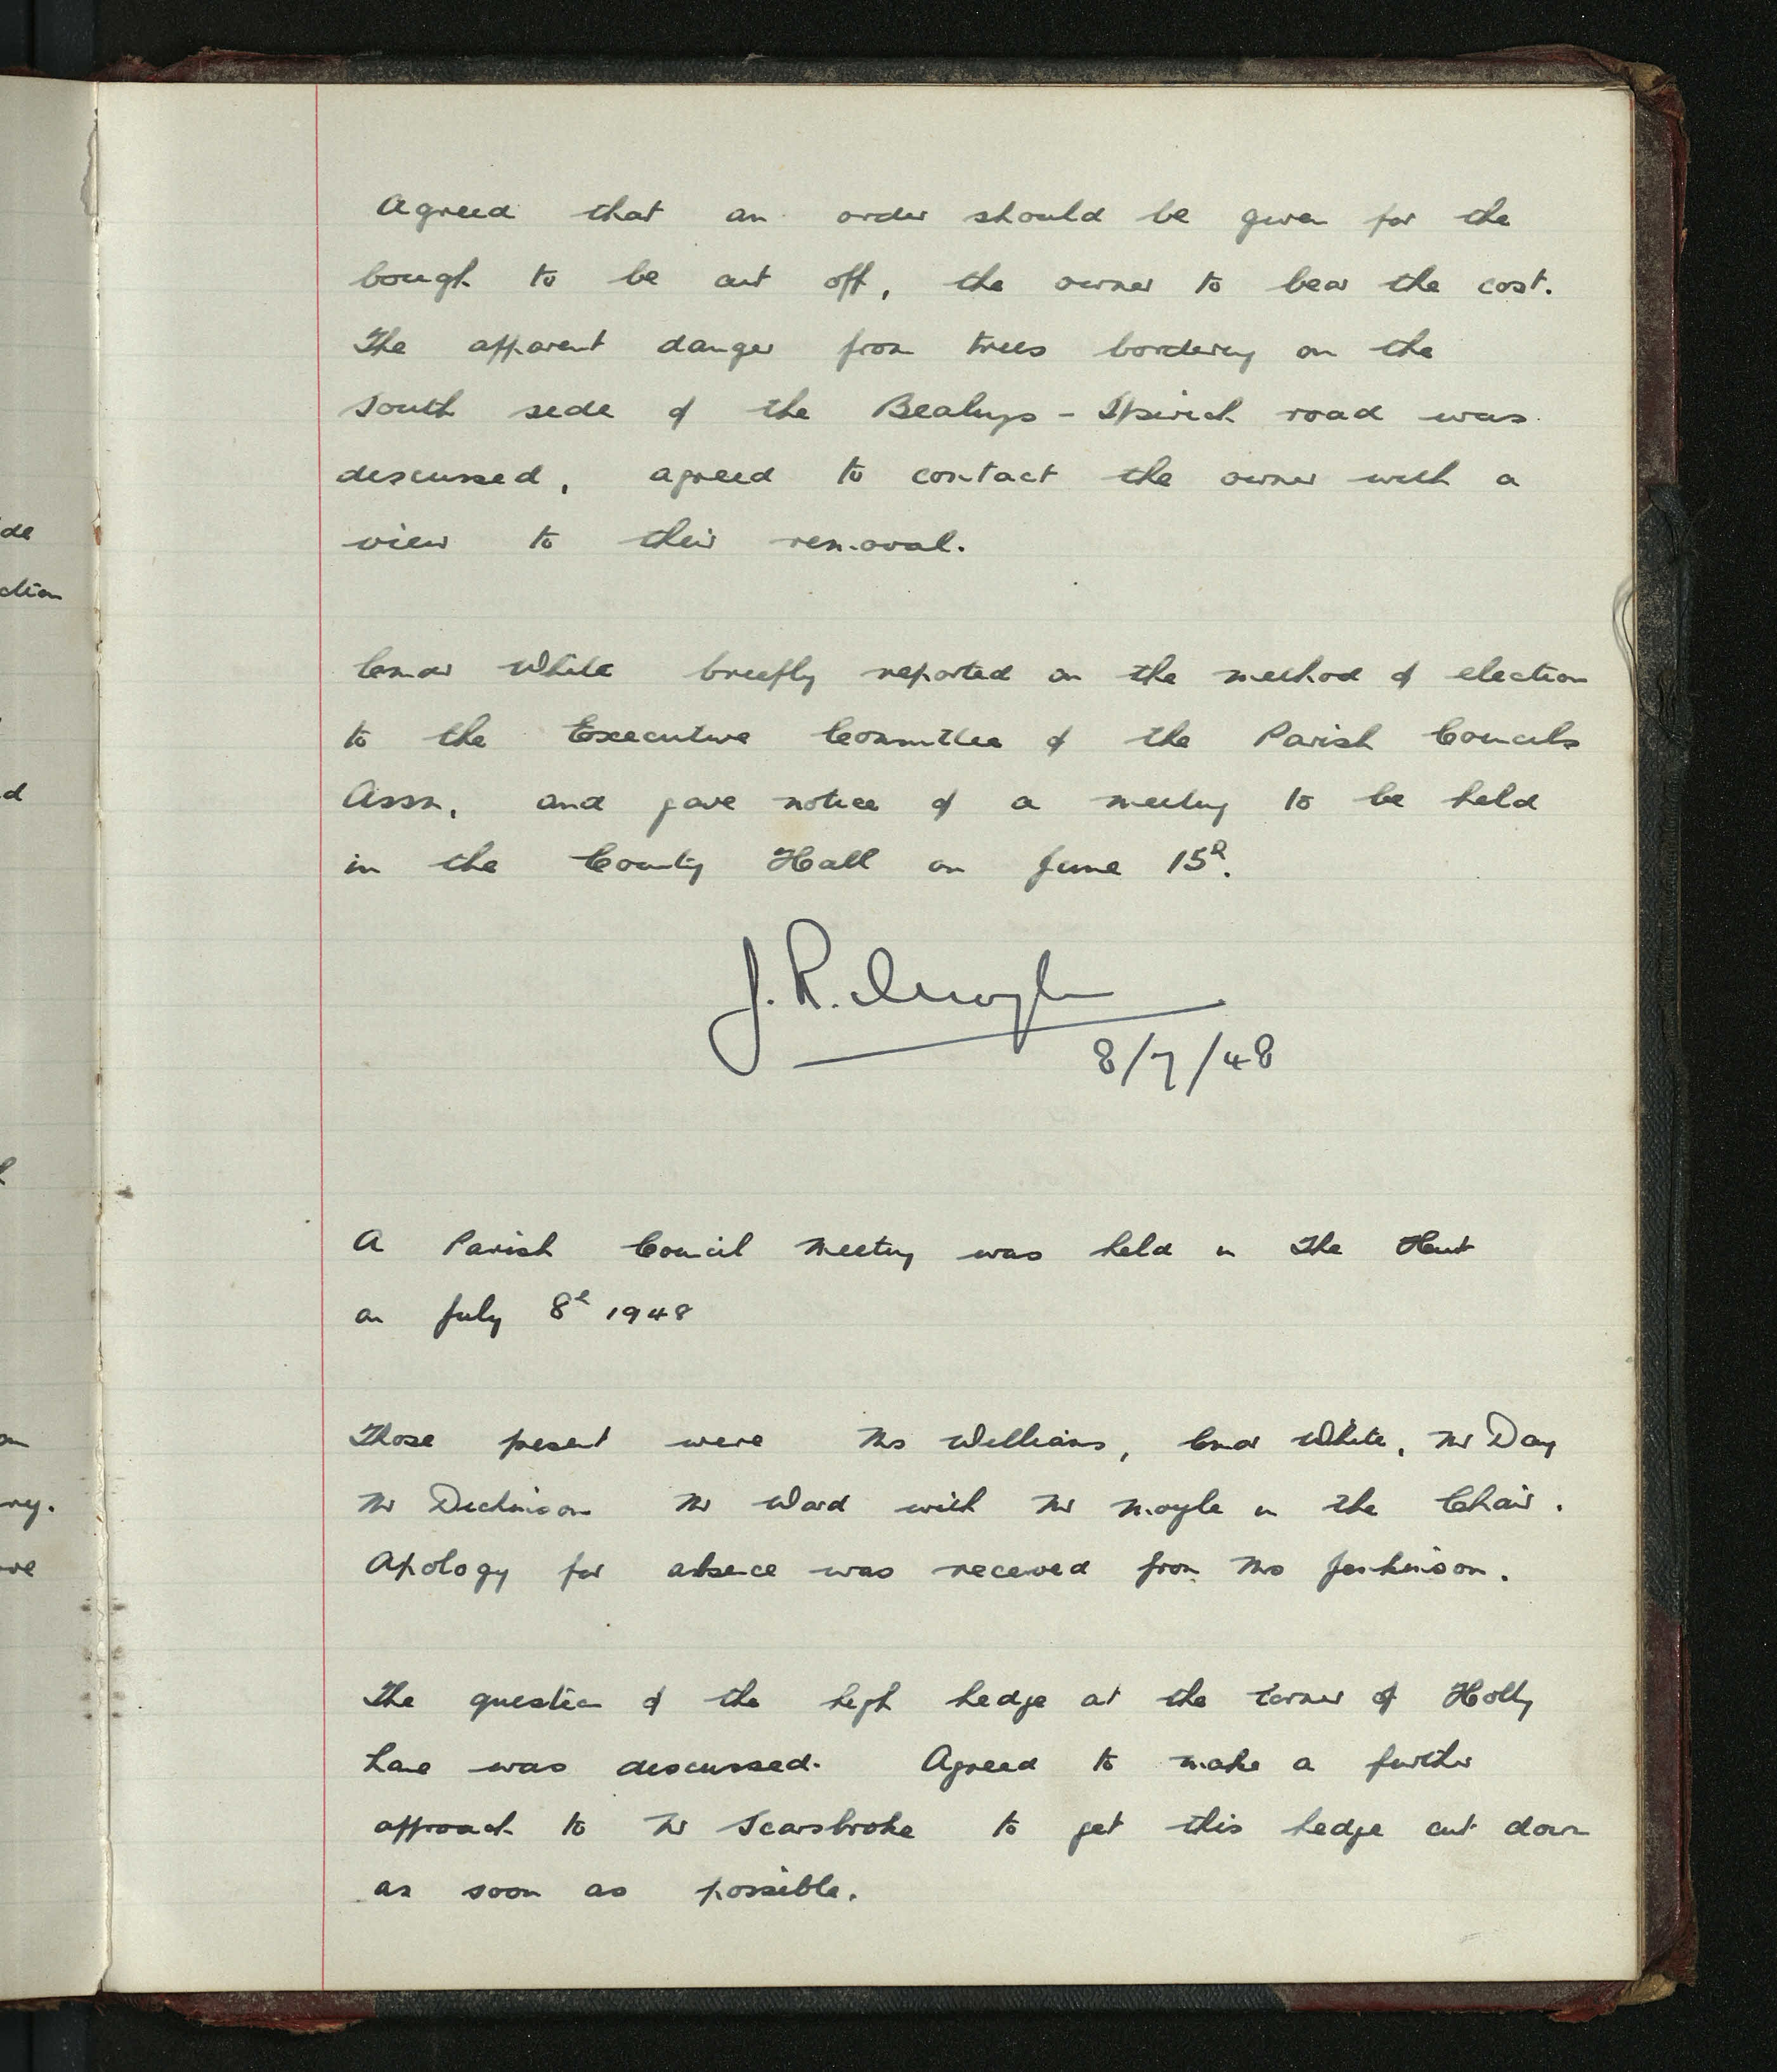 Agreed that an order should be given for the
bough to be cut off, the owner to bear the cost.
The apparent danger from trees bordering on the
South side of the Bealings - Ipswich road was
discussed, agreed to contact the owner with a
view to their removal.
Cmdr White briefly reported on the method of election
to the Executive Committee of the Parish Councils
Assn, and gave notice of a meeting to be held
in the County Hall on June 15th.
J. R. Moyle
8/7/48
A Parish Council Meeting was held in The Hut
on July 8th 1948
Those present were Mrs Williams, Cmdr White, Mr Day
Mr Dickinson Mr Ward with Mr Moyle in the Chair.
Apology for absence was received from Mrs Jenkinson.
The question of the high hedge at the corner of Holly
Lane was discussed. Agreed to make a further
approach to Mr Scarsbroke to get this hedge cut down
as soon as possible.